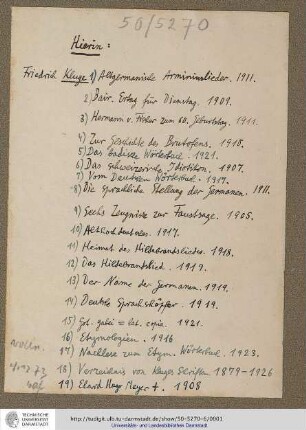 50/5270
Hierin:
Friedrich Kluge 1) Altgermanische Arminiuslieder. 1911.
2) Bair. Ertag für Dienstag. 1909.
3) Hermann v. Fischer zum 60. Geburtstag. 1911.
4) Zur Geschichte des Brutofens. 1918.
5) Das badische Wörterbuch. 1921.
6) Das schweizerische Idiotikon. 1907.
7) Vom Deutschen Wörterbuch. 1919.
8) Die sprachliche Stellung der Germanen. 1911.
9) Sechs Zeugnisse zur Faustsage. 1905.
10) Althochdeutsches. 1917.
11) Heimat des Hildebrandsliedes. 1918.
12) Das Hildebrandslied. 1919.
13) Der Name der Germanen. 1919.
14) Deutsche Sprachschöpfer. 1919.
15) Got. = lat. copia. 1921.
16) Etymologien. 1916
17) Nachlese zum Etym. Wörterbuch. 1923.
18) Verzeichnis von Kluges Schriften 1879-1926
19) Elard Hugo Meyer †. 1908
TECHNISCHE
UNIVERSITÄT
DARMSTADT
http://tudigit.ulb.tu-darmstadt.de/show/50-5270-6/0001
Universitäts- und Landesbibliothek Darmstadt